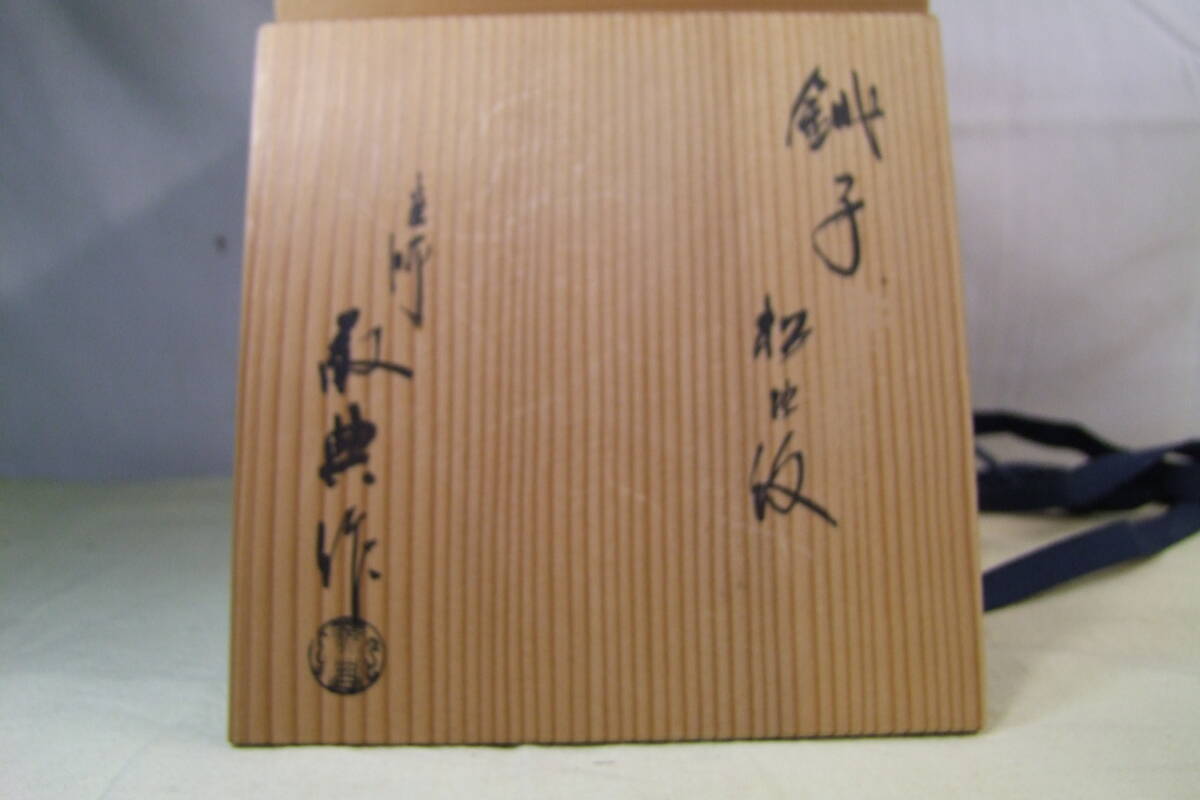 銚子
松地紋
釜師
敬典作